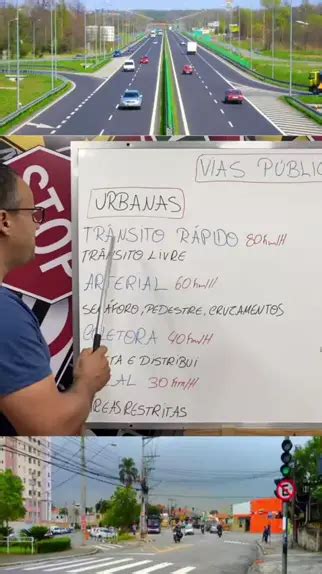 STOP
VIAS PÚBLI
URBANAS
TRÂNSITO RÁPIDO 80 km/H
TRÂNSITO LIVRE
ARTERIAL 60 km/H
SEMÁFORO, PEDESTRE, CRUZAMENTOS
COLETORA 40 km/H
TA E DISTRIBUI
AL 30 km/H
ÁREAS RESTRITAS